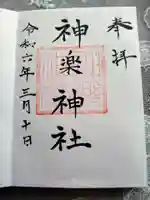 奉拝
神楽神社
令和六年三月十日